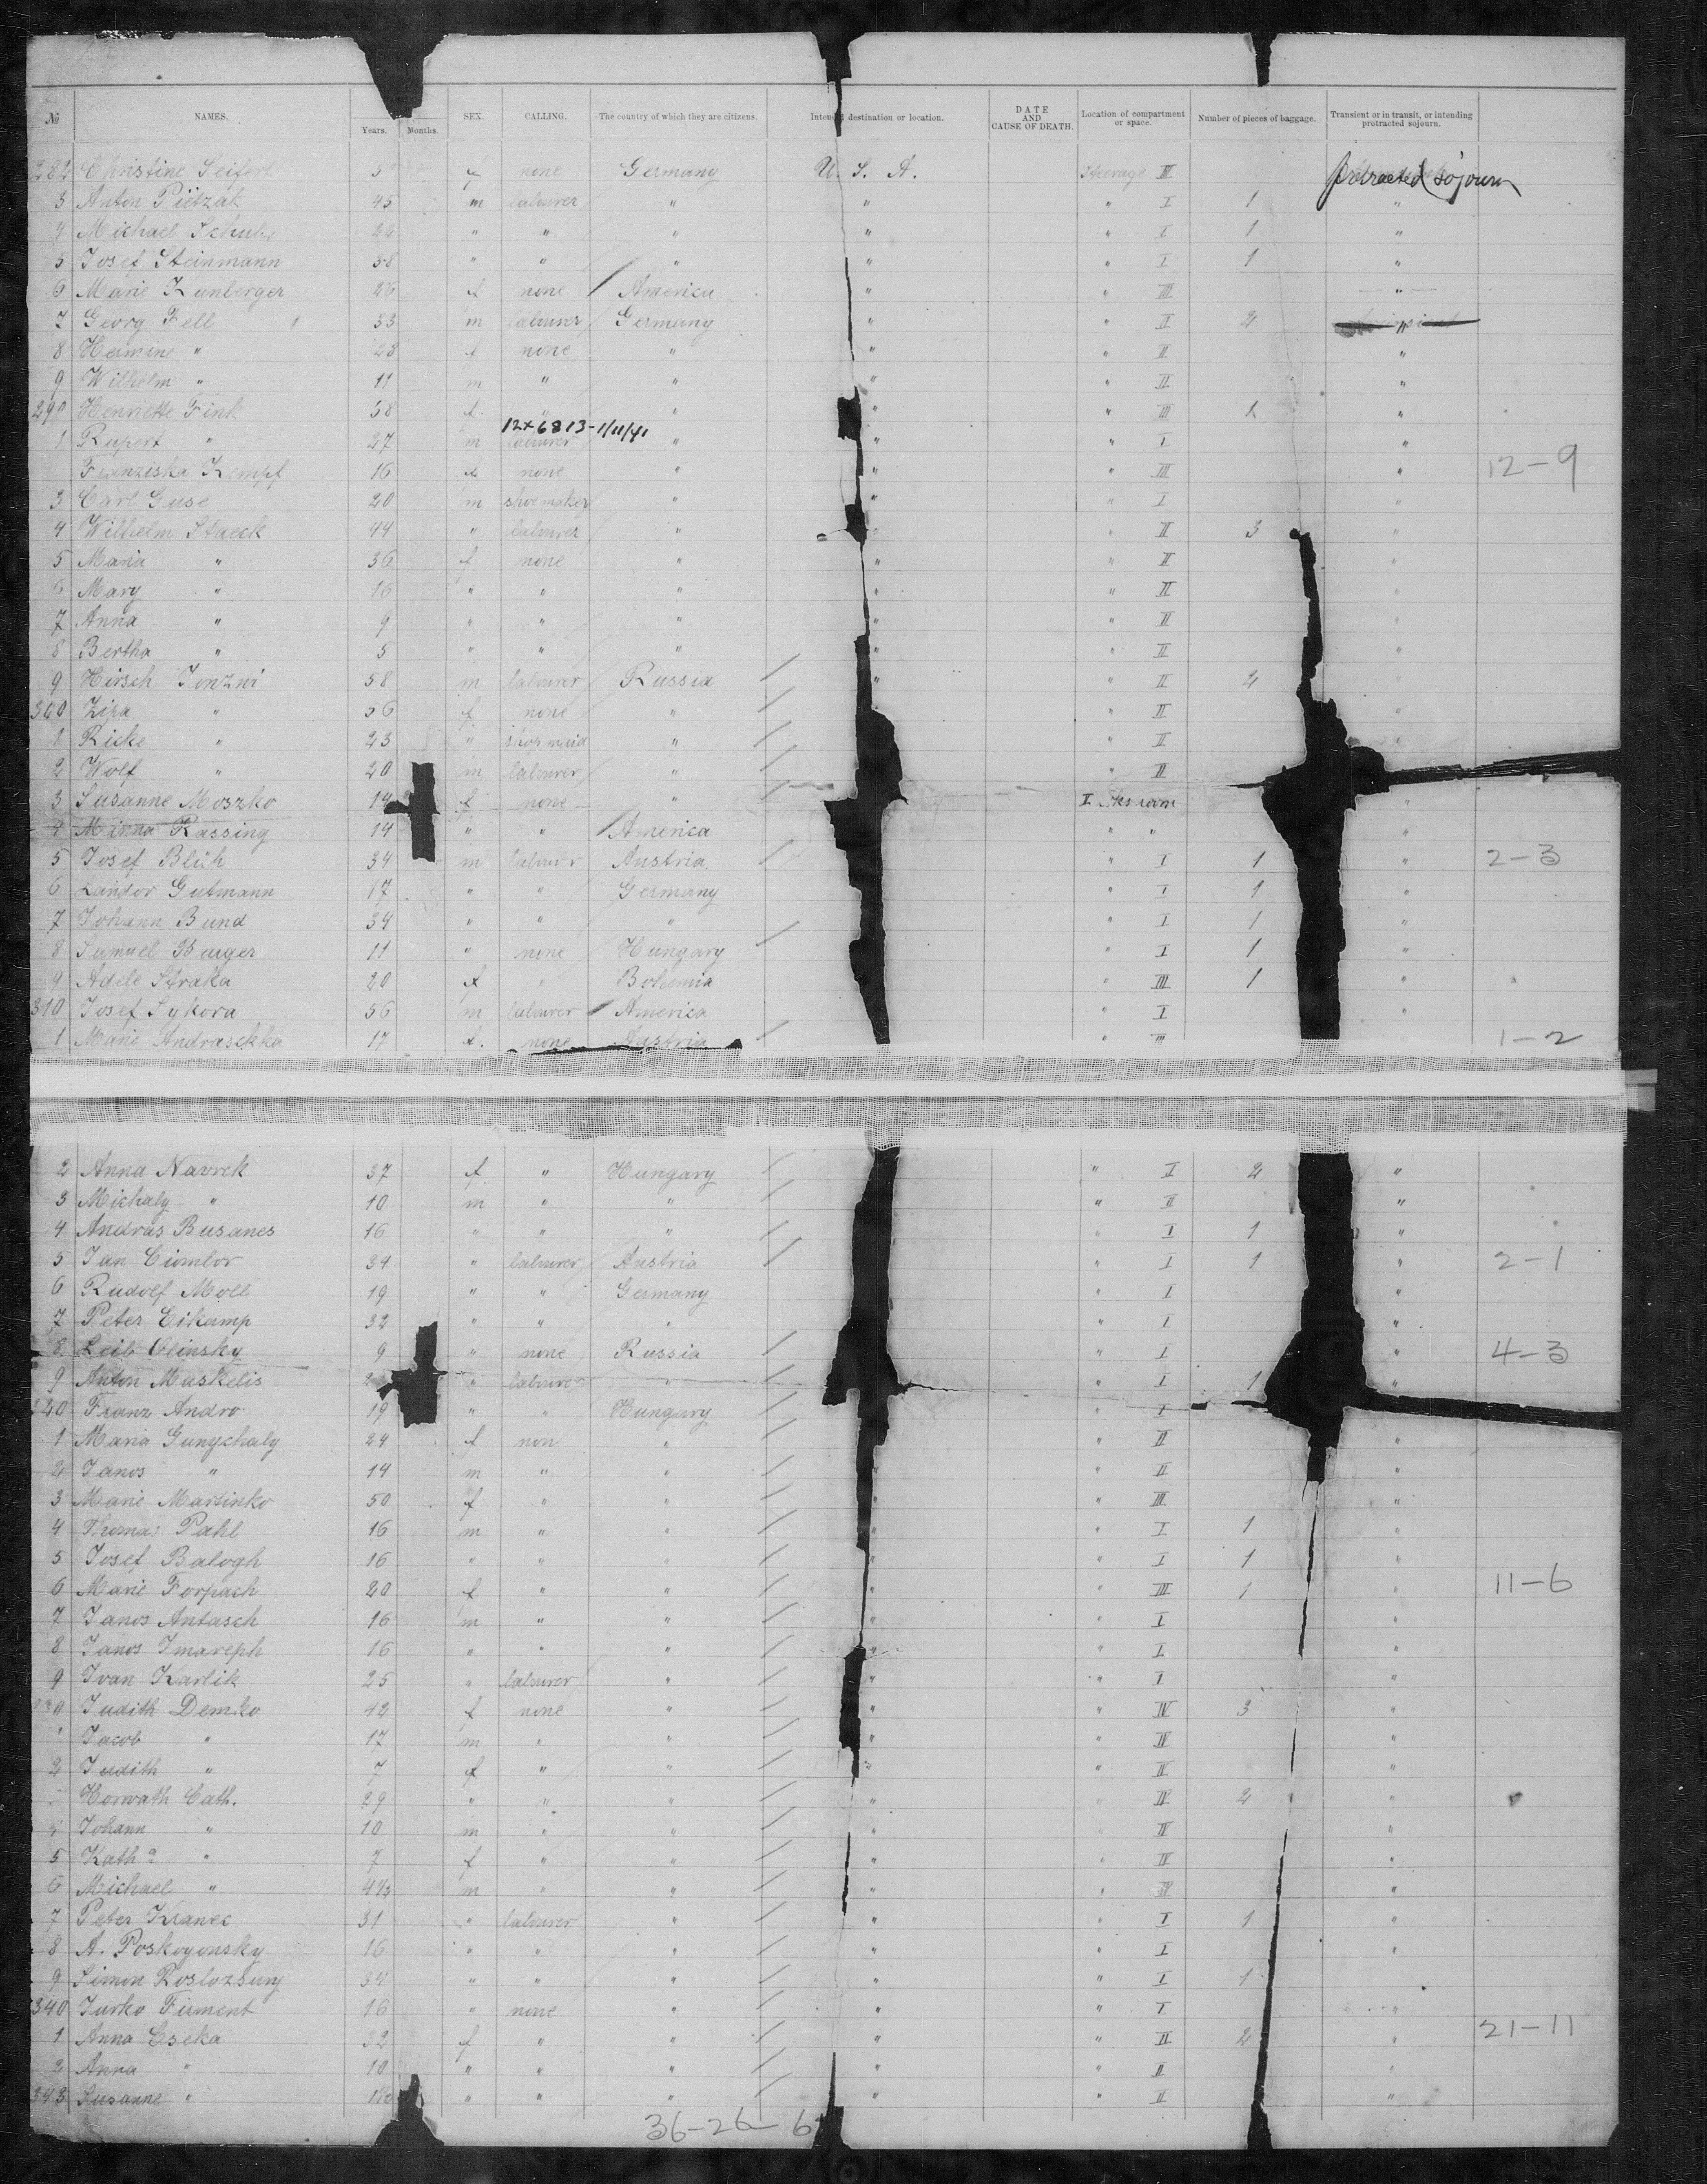 No NAMES. Years. Months. SEX. CALLING. The country of which they are citizens. Intended destination or location. DATE AND CAUSE OF DEATH. Location of compartment or space. Number of pieces of baggage. Transient or in transit, or intending protracted sojourn.
282 Christine Seifert f none Germany U. S. A. Steerage III protracted sojourn
3 Anton Pietzak 45 m labourer " " " I 1 "
4 Michael Schulz " " " " " I 1 "
5 Josef Steinmann 38 " " " " " I 1 "
6 Marie Kunberger 26 f none America " " III "
7 Georg Fell 33 m labourer Germany " " II 2 "
8 Hermine " 23 f none " " " II "
9 Wilhelm " 11 m " " " " II "
290 Henriette Fink 58 f " " " " III 1 "
12x6813-1/11/41
1 Rupert " 27 m labourer " " " I "
Franziska Kempf 16 f none " " " III " 12-9
3 Carl Guse 20 m shoemaker " " " I "
4 Wilhelm Staeck 44 " labourer " " II 3 "
5 Maria " 36 f none " " " II "
6 Mary " 16 " " " " " II "
7 Anna " 9 " " " " " II "
8 Bertha " 5 " " " " " II "
9 Hirsch Jonzni 58 m labourer Russia " " II 2 "
300 Zipa " 56 f none " " II "
1 Ricke " 23 " shop maid " " II "
2 Wolf " 20 m labourer " " II
3 Susanne Moszko 14 f none " I "
4 Minna Rassing 14 " " America " " "
5 Josef Blih 34 m labourer Austria " I 1 " 2-3
6 Sandor Gutmann 17 " " Germany " I 1 "
7 Johann Bund 34 " " " " I 1 "
8 Samuel Burger 11 " none Hungary " I 1 "
9 Adele Straka 20 f " Bohemia " III 1 "
310 Josef Sykora 56 m labourer America " I "
1 Marie Andraschko 17 f. none Austria " III 1-2
2 Anna Navrek 37 f " Hungary " I 2 "
3 Michaly " 10 m " " " II "
4 Andras Busanes 16 " " " " I 1 "
5 Jan Ciombor 34 " labourer Austria " I 1 " 2-1
6 Rudolf Moll 19 " " Germany " I "
7 Peter Eikamp 32 " " " " I "
8 Leib Olinsky 9 " none Russia " I " 4-3
9 Anton Muskelis " labourer " " I 1 "
320 Franz Andro 19 " " Hungary " I
1 Maria Gunyschaly 24 f non " " II "
2 Janos " 14 m " " " " II "
3 Marie Martinko 50 f " " " " III "
4 Thomas Pahl 16 m " " " " I 1 "
5 Josef Balogh 16 " " " " I 1 "
6 Marie Forpach 20 f " " " " III 1 " 11-6
7 Janos Antasch 16 m " " " " I "
8 Janos Imareph 16 " " " " " I "
9 Ivan Karlik 25 " labourer " " " I "
330 Judith Demko 42 f none " " " IV 3 "
1 Jacob " 17 m " " " " IV "
2 Judith " 7 f " " " " IV "
Horvath Cath. 29 " " " " " IV 2 "
4 Johann " 10 m " " " " IV "
5 Kath a " 7 f " " " " IV "
6 Michael " m " " " " IV "
7 Peter Kranec 31 " labourer " " " I 1 "
8 A. Poskoyonsky 16 " " " " " I "
9 Simon Roslozsuny 34 " " " " " I 1
340 Jurko Firment 16 " none " " " I "
1 Anna Cseka 32 f " " " " II 2 " 21-11
2 Anna " 10 " " " " " II
343 Susanne " " " " " " II "
36-26-6